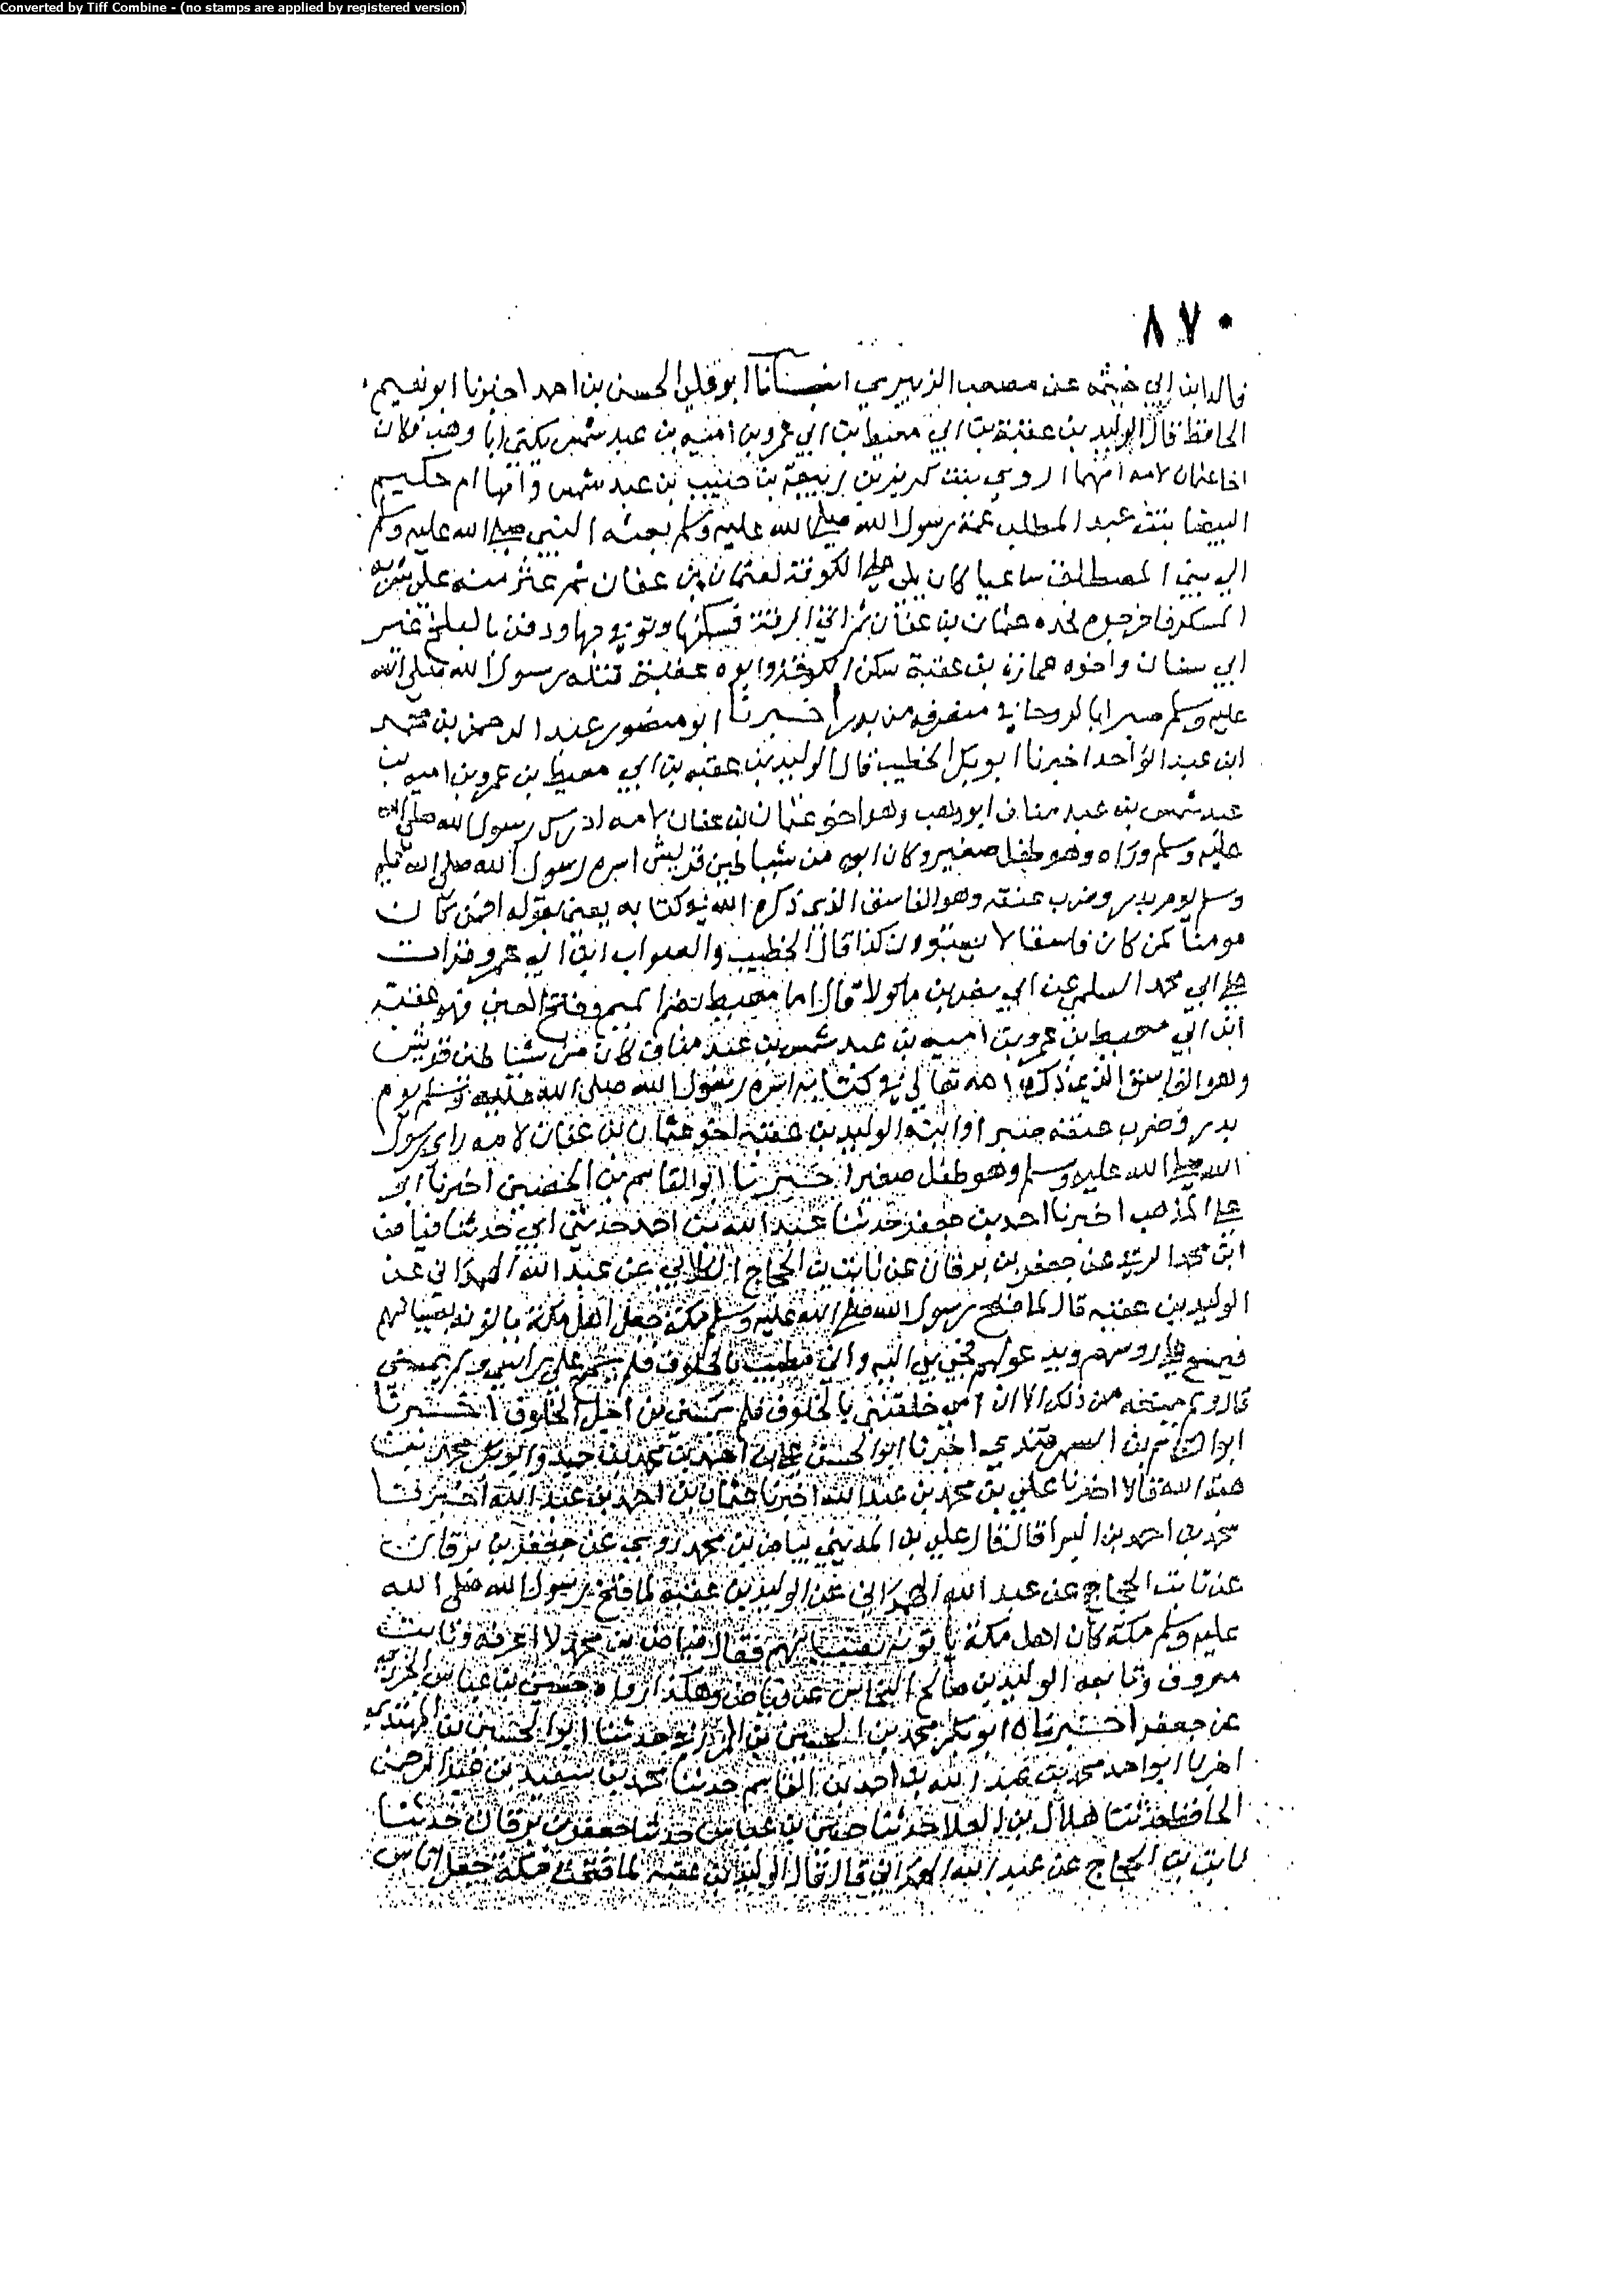 Converted by Tiff Combine - (no stamps are applied by registered version)
٨٧٠
قال ابن ابي خيثمه عن مصعب الزبيري انبانا ابو علي الحسن بن احمد اخبرنا ابو نعيم
الحافظ قال الوليد بن عقبة بن ابي معيط بن ابي عمرو بن اميه بن عبد شمس يكنى ابا وهب وكان
اخا عثمان لامه امهما اروي بنت كريز بن ربيعة بن حبيب بن عبد شمس وامها ام حكيم
البيضا بنت عبد المطلب عمة رسول الله صلى الله عليه وسلم بعثه النبي صلى الله عليه وسلم
الي بني المصطلق ساعيا كان يلي على الكوفة لعثمان بن عفان ثم عثر منه على شربه
المسكر فاخرجوه فحده عثمان بن عفان ثم اتي الرقة فسكنها وتوفي بها ودفن بالبليخ غير
ابي سنان واخوه عمارة بن عقبة سكن الكوفة وابوه عقبة قتله رسول الله صلى الله
عليه وسلم صبرا بالروحا في منصرفه من بدر اخبرنا ابو منصور عبد الرحمن بن محمد
ابن عبد الواحد اخبرنا ابو بكر الخطيب قال الوليد بن عقبه بن ابي معيط بن عمرو بن اميه بن
عبد شمس بن عبد مناف ابو وهب وهو اخو عثمان بن عفان لامه ادرك رسول الله صلى الله
عليه وسلم وراه وهو طفل صغير وكان ابوه من شياطين قريش اسره رسول الله صلى الله عليه
وسلم يوم بدر وضرب عنقه وهو الفاسق الذي ذكره الله في كتابه يعني بقوله افمن كان
مومنا كمن كان فاسقا لا يستوون كذا قال الخطيب والصواب ابن ابي عمرو قرات
على ابي محمد السلمي عن ابي نصر بن ماكولا قال اما معيط بضم الميم وفتح العين فهو عقبة
ابن ابي معيط بن عمرو بن اميه بن عبد شمس بن عبد مناف كان من شياطين قريش
وهو الفاسق الذي ذكره الله تعالى في كتابه اسره رسول الله صلى الله عليه وسلم يوم
بدر وضرب عنقه صبرا وابنه الوليد بن عقبة اخو عثمان بن عفان لامه راى رسول
الله صلى الله عليه وسلم وهو طفل صغير اخبرنا ابو القاسم بن الحصين اخبرنا ابو
علي المذهب اخبرنا احمد بن جعفر حدثنا عبد الله بن احمد حدثني ابي حدثنا فياض
ابن محمد الرقي عن جعفر بن برقان عن ثابت بن الحجاج الكلابي عن عبد الله الهمداني عن
الوليد بن عقبه قال لما فتح رسول الله صلى الله عليه وسلم مكة جعل اهل مكة ياتونه بصبيانهم
فيمسح على روسهم ويدعو لهم فجئ بي اليه واني مطيب بالخلوق فلم يمسح على راسي ولم يمسني
قال ولم يمنعه من ذلك الا ان امي خلقتني بالخلوق فلم يمسني من اجل الخلوق اخبرنا
ابو القاسم بن السمرقندي اخبرنا ابو الحسن علي بن احمد بن محمد بن حميد وابو بكر محمد بن
هبة الله قالا اخبرنا علي بن محمد بن عبد الله اخبرنا عثمان بن احمد بن عبد الله اخبرنا
محمد بن احمد بن البرا قال قال علي بن المديني فياض بن محمد روي عن جعفر بن برقان
عن ثابت الحجاج عن عبد الله الهمداني عن الوليد بن عقبة لما فتح رسول الله صلى الله
عليه وسلم مكة كان اهل مكة ياتونه بصبيانهم فقال فياض بن محمد لا اعرفه وثابت
معروف وتابعه الوليد بن صالح النخاس عن فياض وهكذا رواه حسين بن عياش الجزري
عن جعفر اخبرناه ابو بكر محمد بن الحسين بن المزرفي حدثنا ابو الحسين بن المهتدي
اخبرنا ابو احمد محمد بن عبد الله بن احمد بن القاسم حدثنا محمد بن سعيد بن عبد الرحمن
الحافظ حدثنا هلال بن العلا حدثنا حسين بن عياش حدثنا جعفر بن برقان حدثنا
ثابت بن الحجاج عن عبد الله الهمداني قال قال الوليد بن عقبه لما فتحت مكة جعل الناس